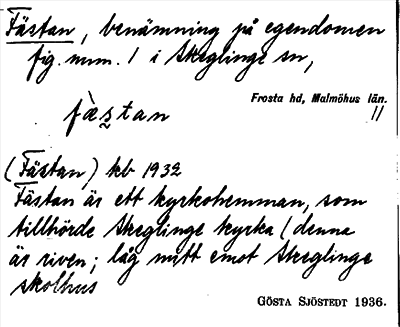 Fästan, benämning på egendomen
fig. num. 1 i Skeglinge sn,
Frosta hd, Malmöhus län.
fä̀s̬tan
11
(Fästan) kb 1932
Fästan är ett kyrkohemman, som
tillhörde Skeglinge kyrka (denna
är riven; låg mitt emot Skeglinge
skolhus
GÖSTA SJÖSTEDT 1936.